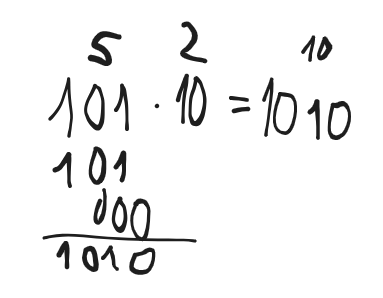 5 2 10
101 · 10 = 1010
101
000
1010